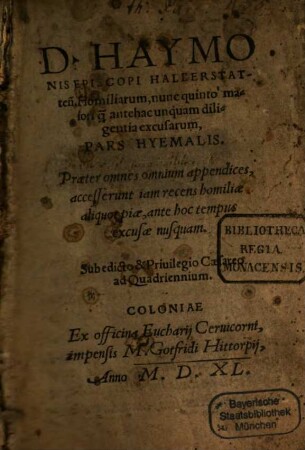 D. HAYMO
NIS EPISCOPI HALLERSTAT-
teñ. Homiliarum, nunc quinto ma-
iori q̃ antehac unquam dili-
gentia excusarum,
PARS HYEMALIS.
Præter omnes omnium appendices,
accesserunt iam recens homiliæ
aliquot piæ, ante hoc tempus
excusæ nusquam.
BIBLIOTHECA
REGIA
MONACENSIS.
Sub edicto & Priuilegio Cæsareo
ad Quadriennium.
COLONIAE
Ex officina Eucharij Ceruicorni,
impensis M. Gotfridi Hittorpij,
Anno M. D. XL.
Bayerische
Staatsbibliothek
München